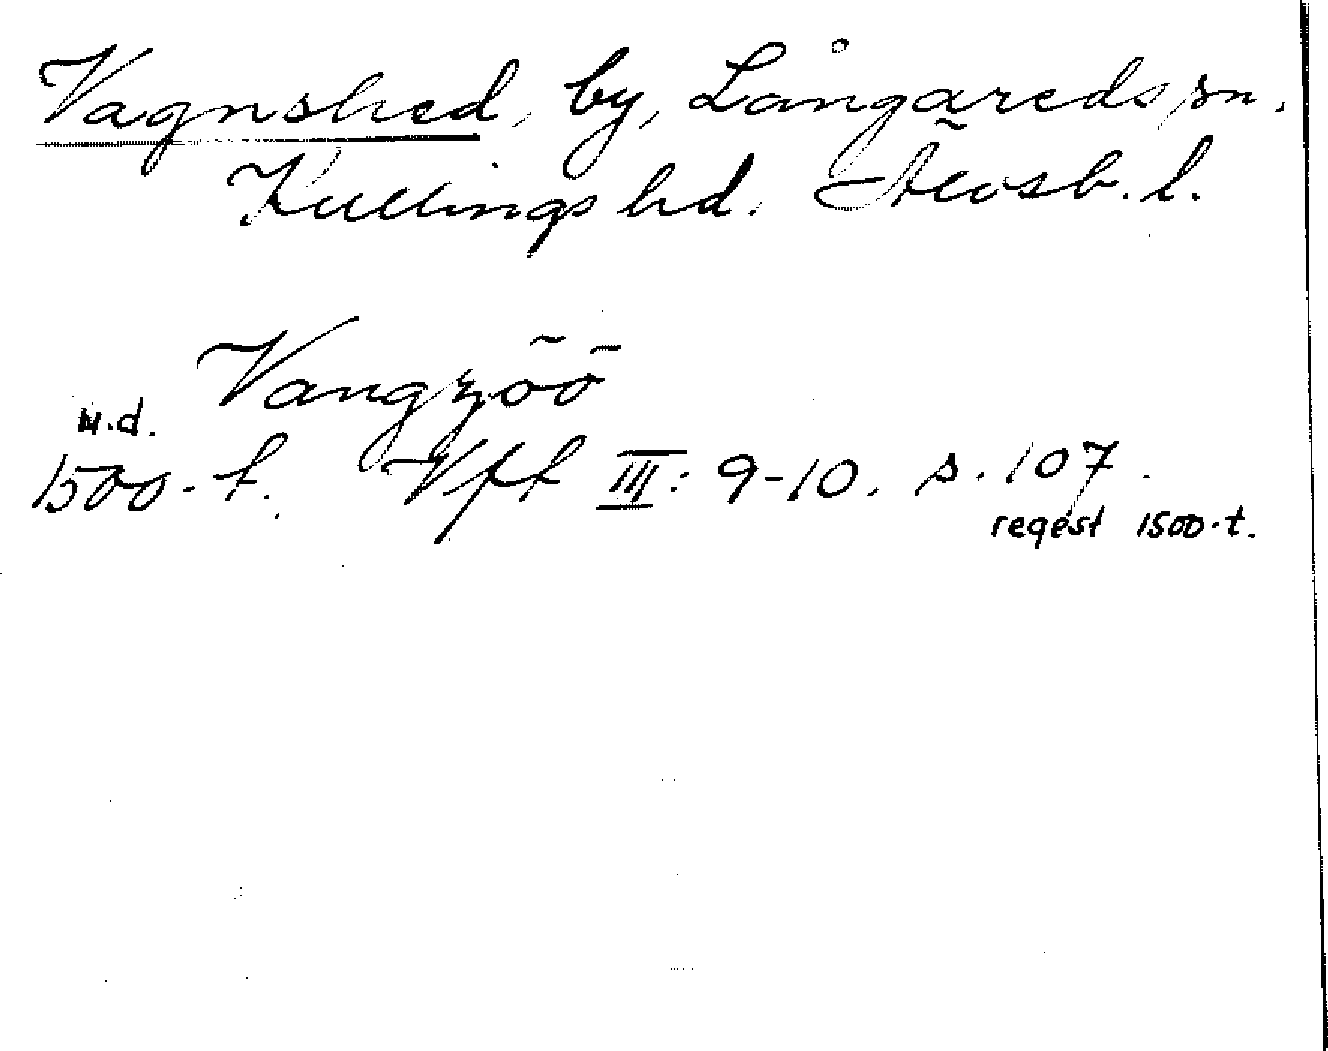 Vagnshed, by, Långareds sn.
Kullings hd. Älvsb. l.
Vangzöö
u.d.
1500-t. Vft III: 9-10. s. 107.
regest 1500-t.